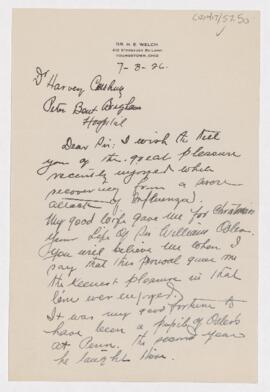 DR. H. E. WELCH
YOUNGSTOWN, OHIO
7-3-26.
Dr Harvey Cushing
Peter Bent Brigham
Hospital
Dear Sir: I wish to tell
you of the great pleasure
recently enjoyed while
recovering from a severe
attack of Influenza.
My good wife gave me for Christmas
Your Life of Sir William Osler.
You will believe me when I
say that this perusal gave me
the keenest pleasure in that
line ever enjoyed.
It was my good fortune to
have been a pupil of Osler's
at Penn. the second year
he taught there.